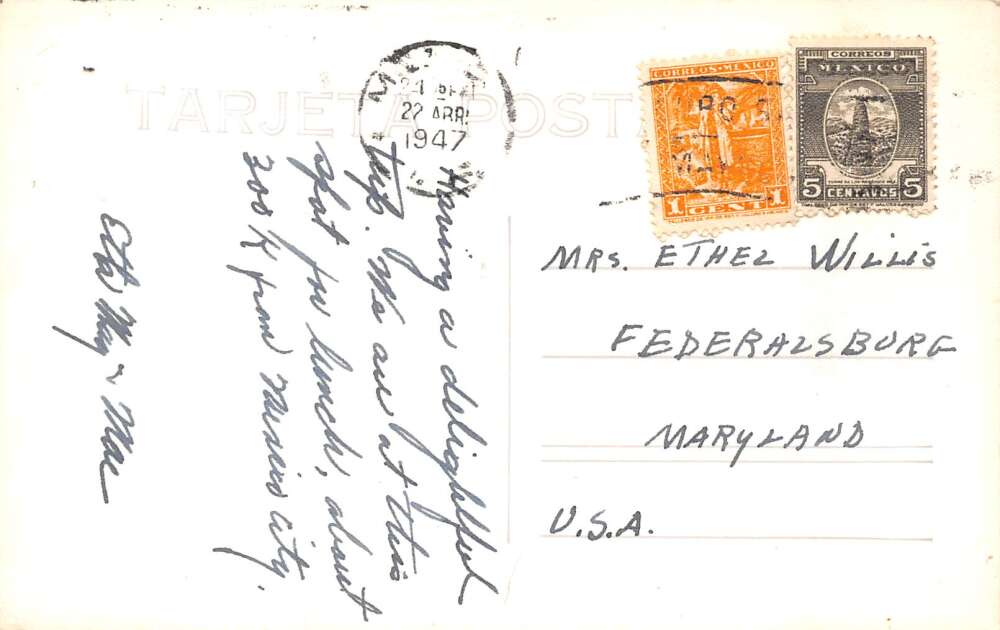 TARJETA POST
22 ABR.
1947
CORREOS MEXICO
1 CENT 1
CORREOS
MEXICO
5 CENTAVOS 5
Having a delightful
trip. We are at this
spot for lunch, about
300 K from Mexico City.
Etta May & Mae
MRS. ETHEL WILLIS
FEDERALSBURG
MARYLAND
U.S.A.